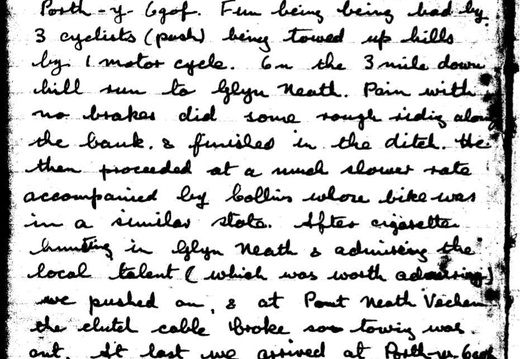 Porth-y-Ogof. Fun being being had by
3 cyclists (push) being towed up hills
by 1 motor cycle. On the 3 mile down
hill run to Glyn Neath. Pain with
no brakes did some rough riding along
the bank, & finished in the ditch. He
then proceeded at a much slower rate
accompanied by Collins whose bike was
in a similar state. After cigarette
hunting in Glyn Neath & admiring the
local talent (which was worth admiring)
we pushed on, & at Pont Neath Vechan
the clutch cable broke so towing was
out. At last we arrived at Porth-yr-Ogof